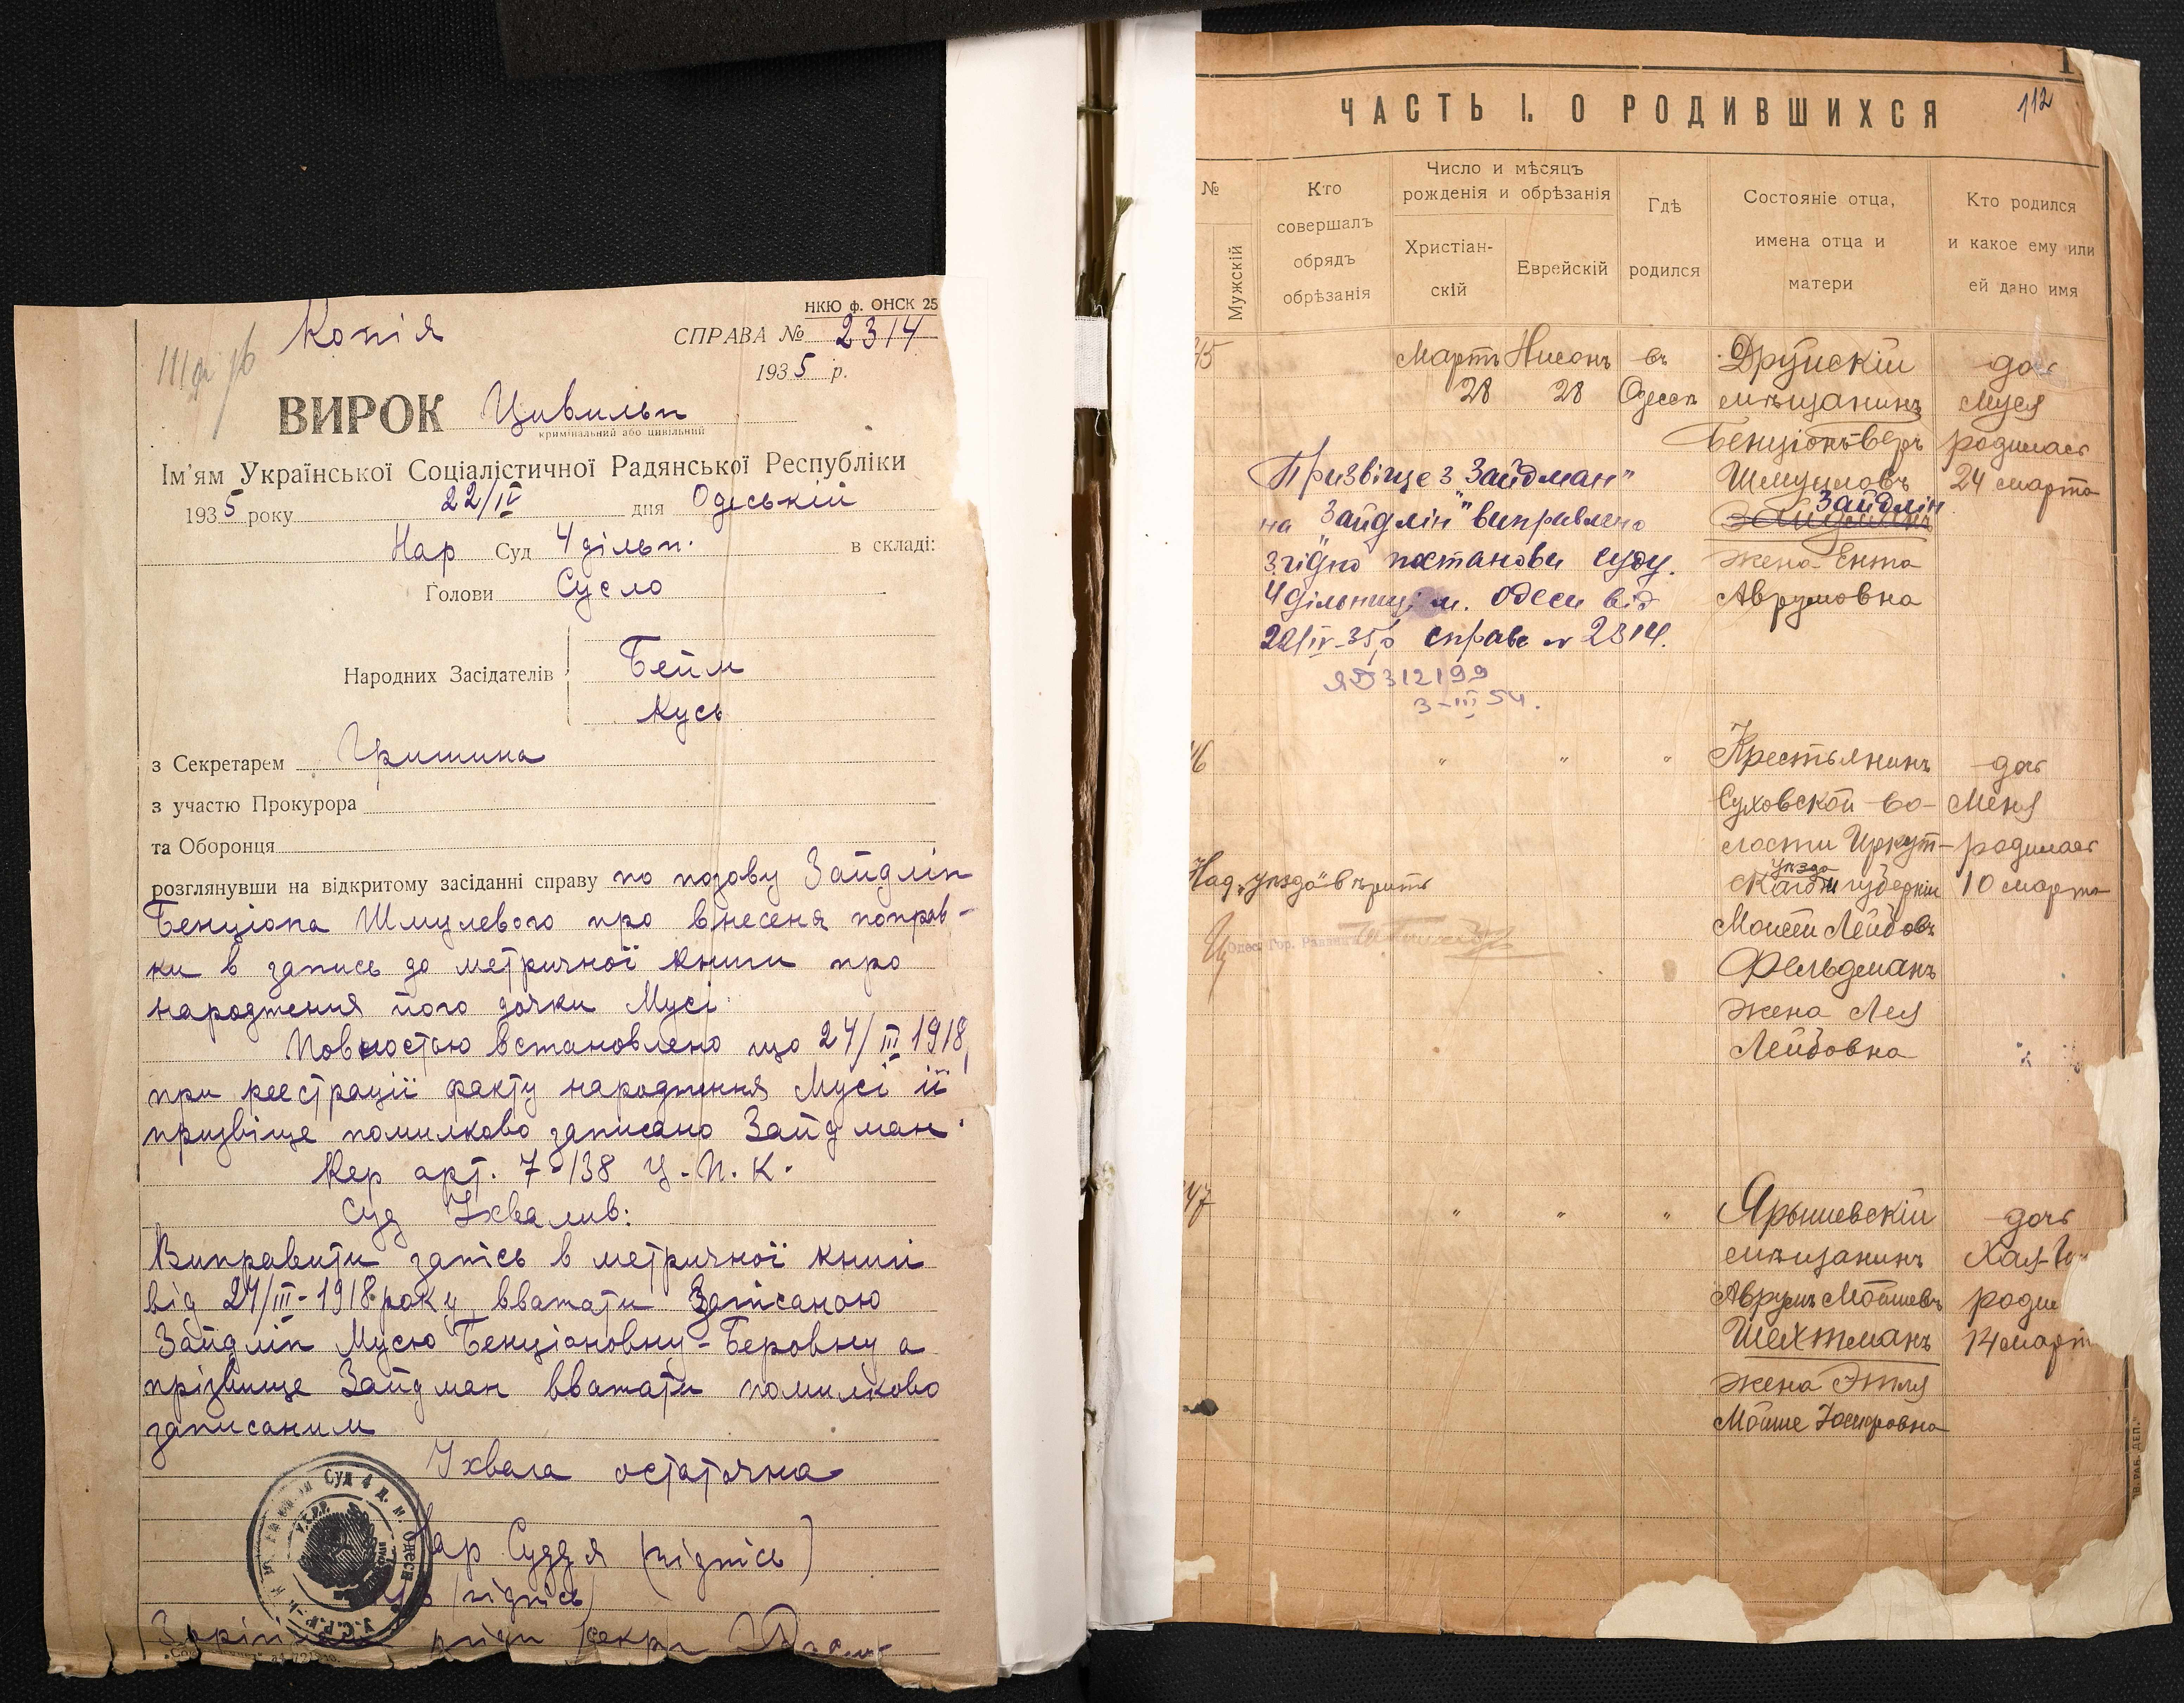 НКЮ ф. ОНСК 25
Копія
СПРАВА № 2314
1935 р.
ВИРОК Цивильн
кримінальний або цивільний
Ім'ям Української Соціалістичної Радянської Республіки
1935 року 22/IV дня Одеській
Нар Суд 4 дільн. в складі:
Голови Сусло
Народних Засідателів Бейм
Кусь
з Секретарем Гришина
з участю Прокурора
та Оборонця
розглянувши на відкритому засіданні справу по позову Зайдлін
Бенціона Шмулевого про внесеня поправ-
ки в запись до метричної книги про
народження його дочки Мусі
Повностью встановлено що 24/III 1918,
при реєстрації факту народження Мусі її
призвіще помилково записано Зайдман.
Кер арт. 7-138 Ц.П.К.
Суд Ухвалив:
Виправити запісь в метричної книги
від 24/III-1918 року вважати Записаною
Зайдлін Мусю Бенціоновну-Беровну а
прізвище Зайдман вважати помилково
записаним
Ухвала остаточна
Нар Суддя (підпісь)
(підпісь)
112
ЧАСТЬ I. О РОДИВШИХСЯ
№
Мужскій
Кто совершалъ обрядъ обрѣзанія
Число и мѣсяцъ рожденія и обрѣзанія
Христіан-скій
Еврейскій
Гдѣ родился
Состояніе отца, имена отца и матери
Кто родился и какое ему или ей дано имя
45 Мартъ Нисонъ въ Друйскій дочь
28 28 Одессѣ мѣщанинъ Муся
Бенціонъ-Беръ родилась
Шмулювъ 24 марта
Зайдманъ Зайдлін
жена Ента
Аврумовна
Призвіще з "Зайдман"
на "Зайдлін" виправлено
згідно постанови суду.
4 дільниці м. Одеси від
22/IV-35 р справа № 2314.
ЯЮ 312199
3-III 54.
46 " " " Крестьянинъ дочь
Суховской во- Меня
лости Иркут- родилась
уѣзда
ской губерніи 10 марта
Моисей Лейбовъ
Фельдманъ
жена Лея
Лейбовна
Над. "уѣзда" вѣрить
Одес. Гор.
47 " " " Ярышевскій дочь
мѣщанинъ Хая-
Аврумъ Мошиевъ роди
Шехтманъ 14 март
жена Этля
Мошие Хаскровна